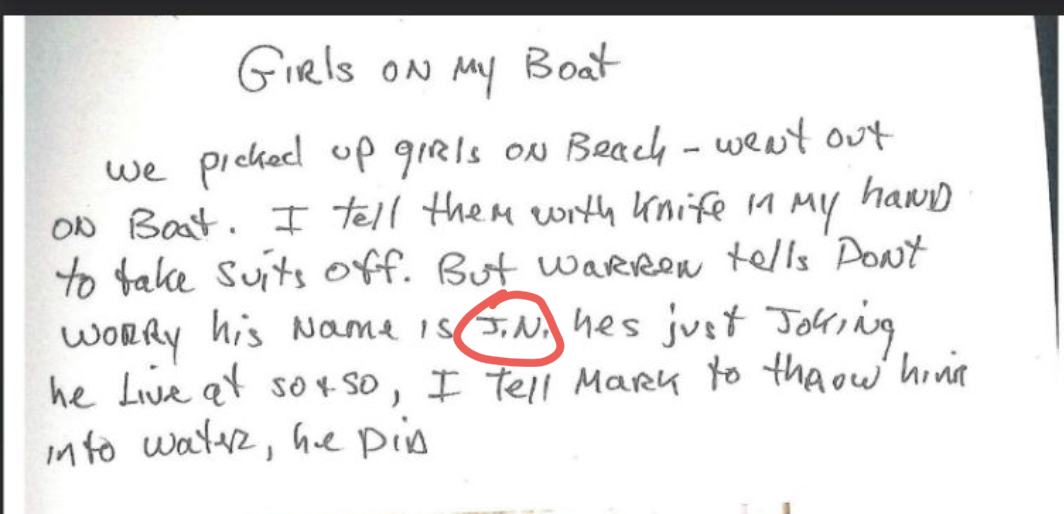 GIRls ON My Boat
we picked up gIRls ON Beach - went out
ON Boat. I tell them with knife in My haND
to take suits off. But WARREN tells DoNt
WORRy his Name is J.N. hes just JoKing
he Live at so & so, I tell MARK to thRow him
into wateR, he DiD